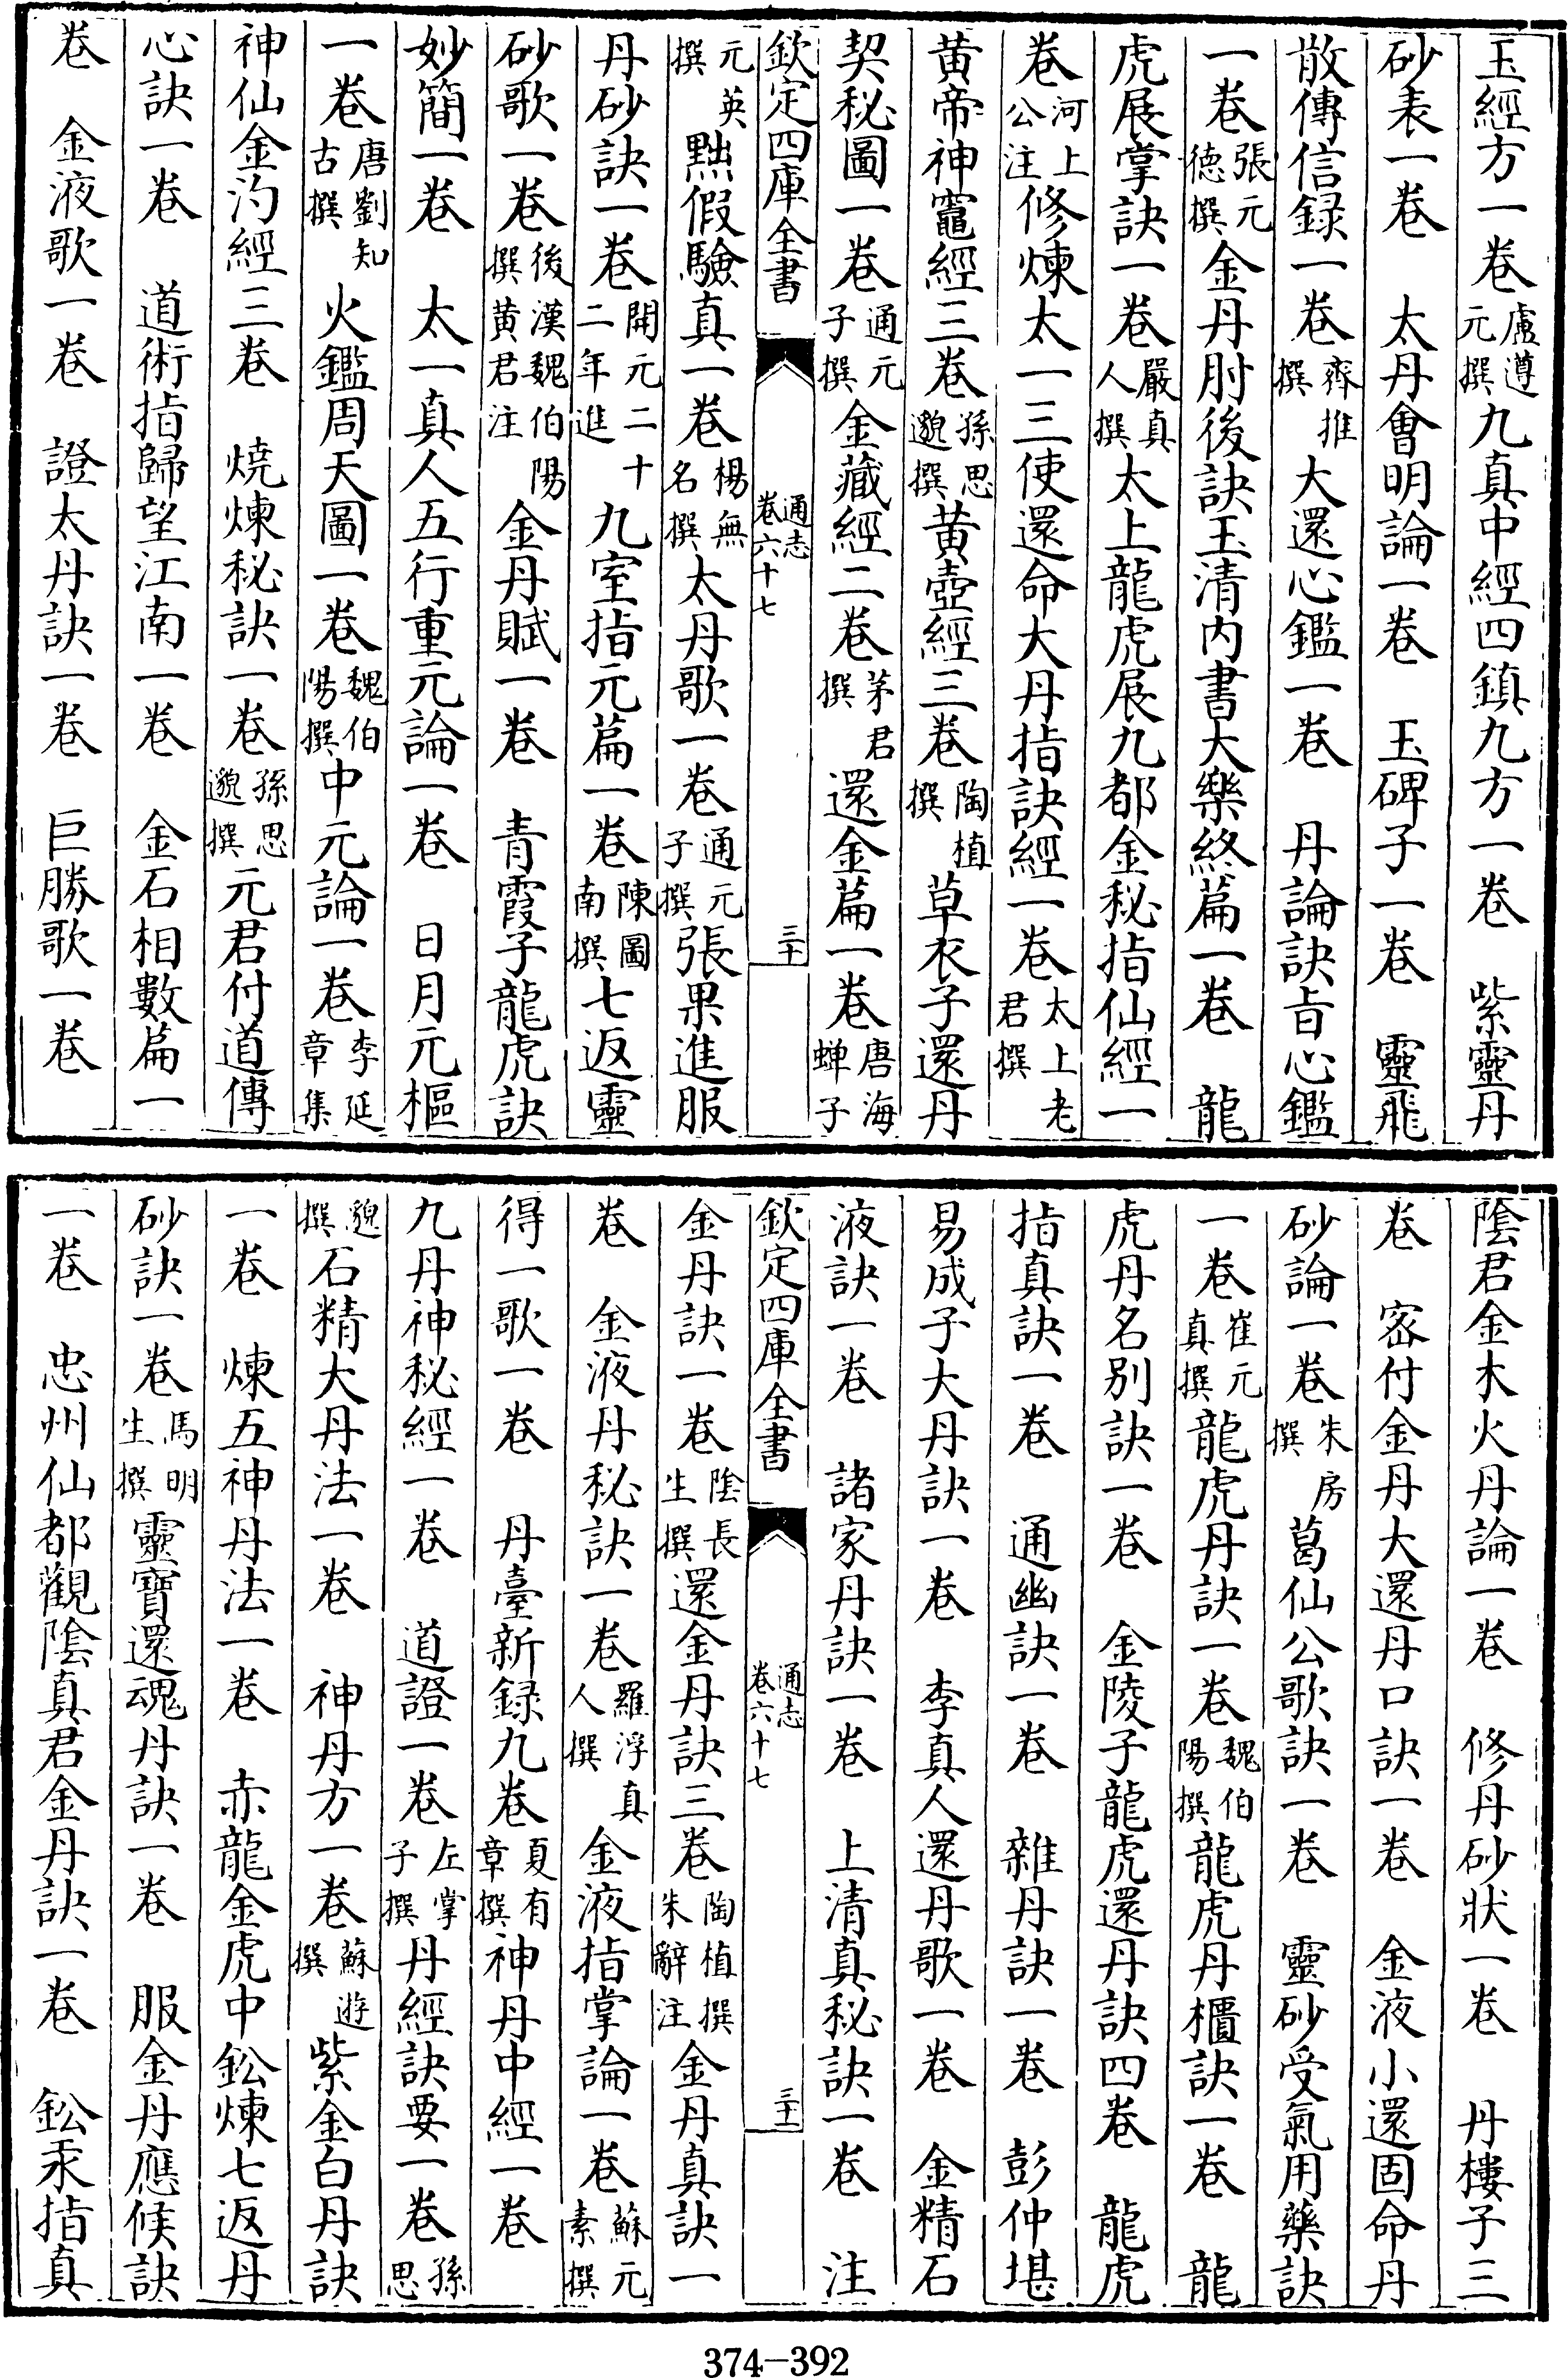 玉經方一卷盧遵元撰九真中經四鎮九方一卷　紫靈丹
砂表一卷　太丹會明論一卷　玉碑子一卷　靈飛
散傳信録一卷齊推撰大還心鑑一卷　丹論訣旨心鑑
一卷張元德撰金丹肘後訣玉清内書大樂終篇一卷　龍
虎展掌訣一卷嚴真人撰太上龍虎展九都金秘指仙經一
卷河上公注修煉太一三使還命大丹指訣經一卷太上老君撰
黄帝神竈經三卷孫思邈撰黄壺經三卷陶植撰草衣子還丹
契秘圖一卷通元子撰金藏經二卷茅君撰還金篇一卷唐海蟬子
欽定四庫全書　通志卷六十七　三十
元英撰黜假驗真一卷楊無名撰太丹歌一卷通元子撰張果進服
丹砂訣一卷開元二十二年進九室指元篇一卷陳圖南撰七返靈
砂歌一卷後漢魏伯陽撰黄君注金丹賦一卷　青霞子龍虎訣
妙簡一卷　太一真人五行重元論一卷　日月元樞
一卷唐劉知古撰火鑑周天圖一卷魏伯陽撰中元論一卷李延章集
神仙金汋經三卷　燒煉秘訣一卷孫思邈撰元君付道傳
心訣一卷　道術指歸望江南一卷　金石相數篇一
卷　金液歌一卷　證太丹訣一卷　巨勝歌一卷
陰君金木火丹論一卷　修丹砂狀一卷　丹樓子三
卷　宻付金丹大還丹口訣一卷　金液小還固命丹
砂論一卷朱房撰葛仙公歌訣一卷　靈砂受氣用藥訣
一卷崔元真撰龍虎丹訣一卷魏伯陽撰龍虎丹櫃訣一卷　龍
虎丹名別訣一卷　金陵子龍虎還丹訣四卷　龍虎
指真訣一卷　通幽訣一卷　雜丹訣一卷　彭仲堪
易成子大丹訣一卷　李真人還丹歌一卷　金精石
液訣一卷　諸家丹訣一卷　上清真秘訣一卷　注
欽定四庫全書　通志卷六十七　三十一
金丹訣一卷陰長生撰還金丹訣三卷陶植撰朱辭注金丹真訣一
卷　金液丹秘訣一卷羅浮真人撰金液指掌論一卷蘇元素撰
得一歌一卷　丹臺新録九卷夏有章撰神丹中經一卷
九丹神秘經一卷　道證一卷左掌子撰丹經訣要一卷孫思
邈撰石精大丹法一卷　神丹方一卷蘇遊撰紫金白丹訣
一卷　煉五神丹法一卷　赤龍金虎中鈆煉七返丹
砂訣一卷馬明生撰靈寶還魂丹訣一卷　服金丹應候訣
一卷　忠州仙都觀陰真君金丹訣一卷　鈆汞指真
374-392